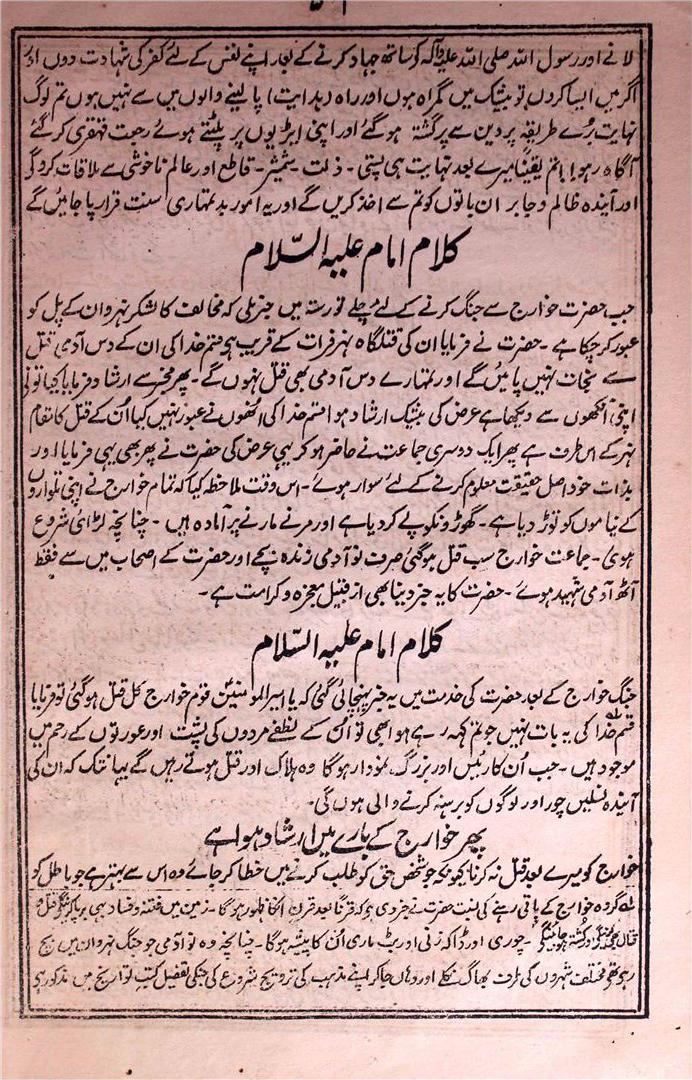 لانے اور رسول اللہ صلی اللہ علیہ وآلہ کو ساتھ جہاد کرنے کے بعد اپنے نفس کے لئے کفر کی شہادت دوں اور
اگر میں ایسا کروں تو بیشک میں گمراہ ہوں اور راہ ہدایت) پا لینے والوں میں سے نہیں ہوں تم لوگ
نہایت برُے طریقہ پر دین سے برگشتہ ہو گئے اور اپنی ایڑیوں پر پلٹتے ہوئے رجعت قہقری کر گئے
آگاہ رہو! تم یقیناً میرے بعد نہایت ہی پستی۔ ذلت۔ شمشیر۔ قاطع اور عالم ناخوشی سے ملاقات کروگے
اور آیندہ ظالم و جابر ان باتوں کو تم سے اخذ کریں گے اور یہ امور بد تمہاری سنت قرار پا جائیں گے
کلام امام علیہ السّلام
جب حضرت خوارج سے جنگ کرنے کے لئے چلے تو رستہ میں خبر ملی کہ مخالف کا لشکر نہروان کے پل کو
عبور کر چکا ہے۔ حضرت نے فرمایا ان کی قتلگاہ نہر فرات کے قریب ہو قسم خدا کی ان کے دس آدمی قتل
سے نجات نہیں پائیں گے اور تمہارے دس آدمی بھی قتل نہوں گے۔ پھر مخبر سے ارشاد فرمایا کیا تو نی
اپنی آنکھوں سے دیکھا ہے عرض کی بیشک ارشاد ہوا قسم خدا کی انھوں نے عبور نہیں کیا اُن کے قتل کا مقام
نہر کے اس طرف ہے پھر ایک دوسری جماعت نے حاضر ہو کر یہی عرض کی حضرت نے پھر بھی یہی فرمایا اور
بذات خود اصل حقیقت معلوم کرنے کے لئے سوار ہوئے۔ اس وقت ملاحظہ کیا کہ تمام خوارج نے اپنی تلواروں
کے نیاموں کو توڑ دیا ہے۔ گھوڑونکو پے کر دیا ہے اور مرنے مارنے پر آمادہ ہیں۔ چنانچہ لڑائی شروع
ہوئی۔ جماعت خوارج سب قتل ہو گئی صرف نو آدمی زندہ بچے اور حضرت کے اصحاب میں سے فقط
آٹھ آدمی شہید ہوئے۔ حضرت کا یہ خبر دینا بھی از قبیل معجزہ و کرامت ہے۔
کلام امام علیہ السّلام
جنگ خوارج کے بعد حضرت کی خدمت میں یہ خبر پہنچائی گئی کہ یا امیر المومنین قوم خوارج کل قتل ہو گئی تو فرمایا
قسم خدا کی یہ بات نہیں جو تم کہہ رہے ہو ابھی تو اُن کے نطفے مردوں کی پشت اور عورتوں کے رحم میں
موجود ہیں۔ جب اُن کا رئیس اور بزرگ نمودار ہوگا وہ ہلاک اور قتل ہوتے رہیں گے یہانتک کہ ان کی
آیندہ نسلیں چور اور لوگوں کو برہنہ کرنے والی ہوں گی۔
پھر خوارج کے بارے میں ارشاد ہوا ہے
خوارج کو میرے بعد قتل نہ کرنا کیونکہ جو شخص حق کو طلب کرنے میں خطا کر جائے وہ اس سے بہتر ہے جو باطل کو
لہ گروہ خوارج کے باقی رہنے کی نسبت حضرت نے خبر دی ہو کہ قرناً بعد قرن انکا ظہور ہوگا۔ زمین میں فتنہ و فساد بھی برپا کرینگے قتل و
چوری اور ڈاکہ زنی اور بٹ ماری اُن کا پیشہ ہوگا۔ چنانچہ وہ نو آدمی جو جنگ نہروان میں بچ
رہی تھو مختلف شہروں کی طرف بھاگ نکلے اور وہاں جا کر اپنے مذہب کی ترویج شروع کی جنکی تفصیل کتب تواریخ میں مذکور ہی